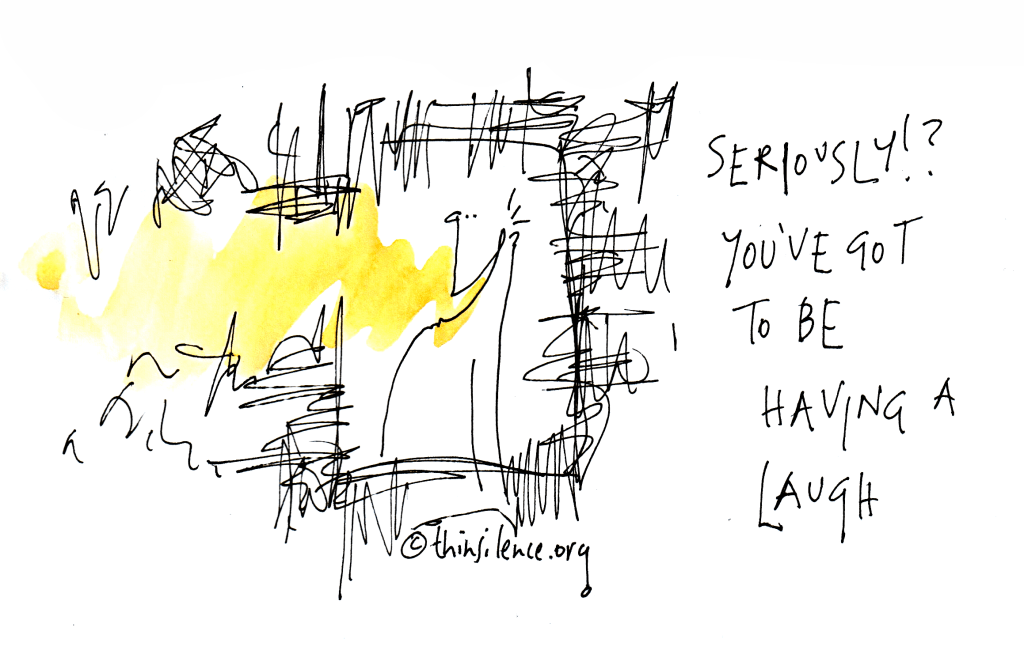 SERIOUSLY!?
YOU'VE GOT
TO BE
HAVING A
LAUGH
©thinsilence.org